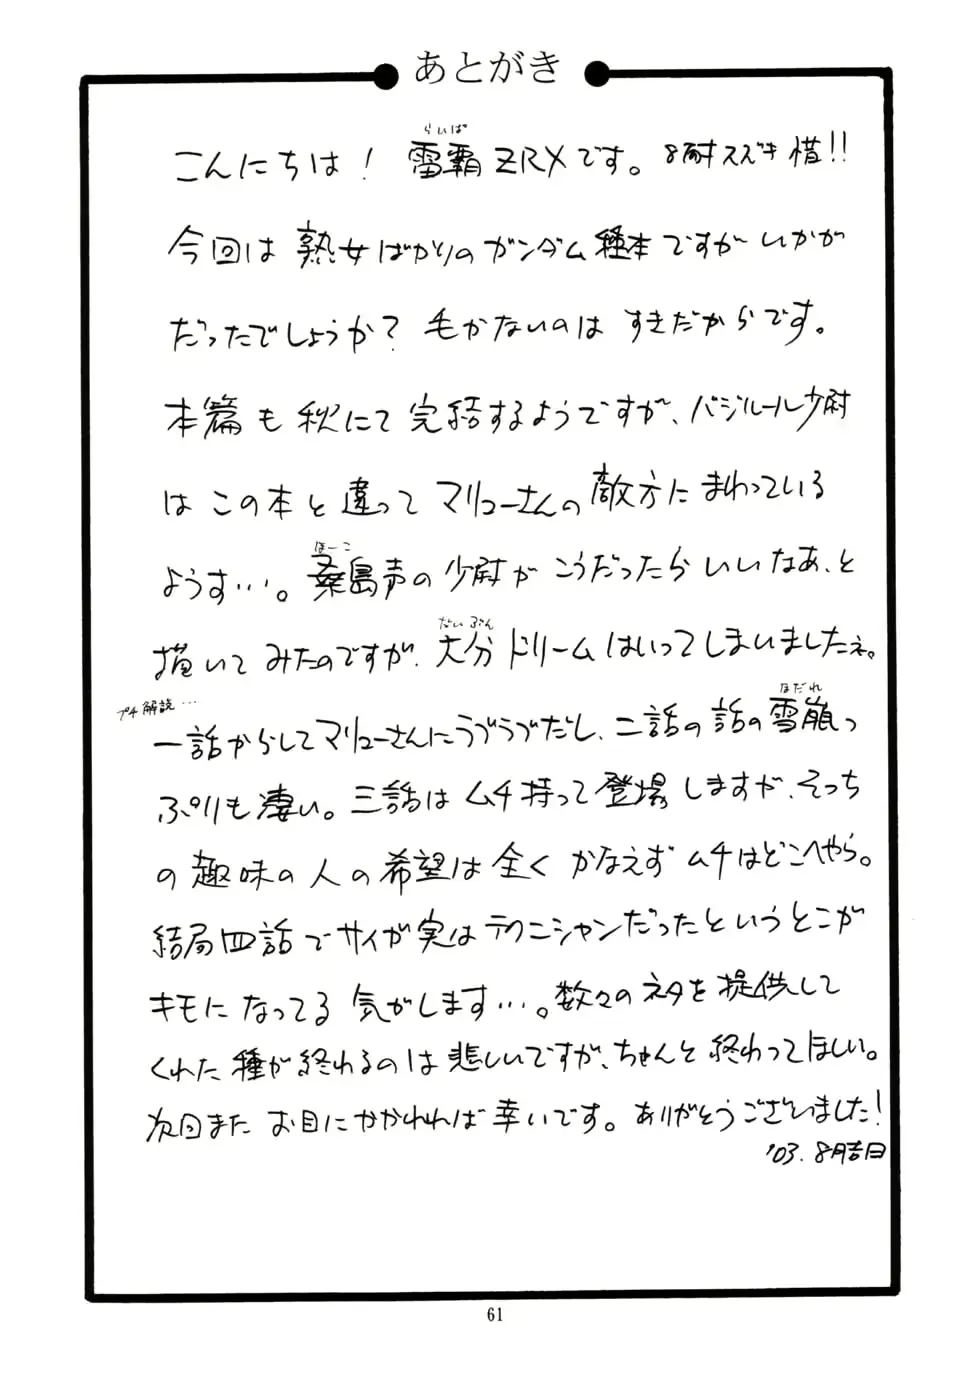 あとがき
らいば
こんにちは！雷覇ZRXです。8耐スズキ惜!!
今回は熟女ばかりのガンダム種本ですがいかが
だったでしょうか？毛がないのはすきだからです。
本篇も秋にて完結するようですが、バジルール少尉
はこの本と違ってマリューさんの敵方にまわっている
ほーこ
ようす…。桑島声の少尉がこうだったらいいなあ、と
だいぶん
描いてみたのですが、大分ドリームはいってしまいましたネ。
プチ解説…
なだれ
一話からしてマリューさんにラブラブだし、二話の話の雪崩っ
ぷりも凄い。三話はムチ持って登場しますが、そっち
の趣味の人の希望は全くかなえずムチはどこへやら。
結局四話でサイが実はテクニシャンだったというとこが
キモになってる気がします…。数々のネタを提供して
くれた種が終わるのは悲しいですが、ちゃんと終わってほしい。
次回またお目にかかれれば幸いです。ありがとうございました！
'03.8月吉日
61